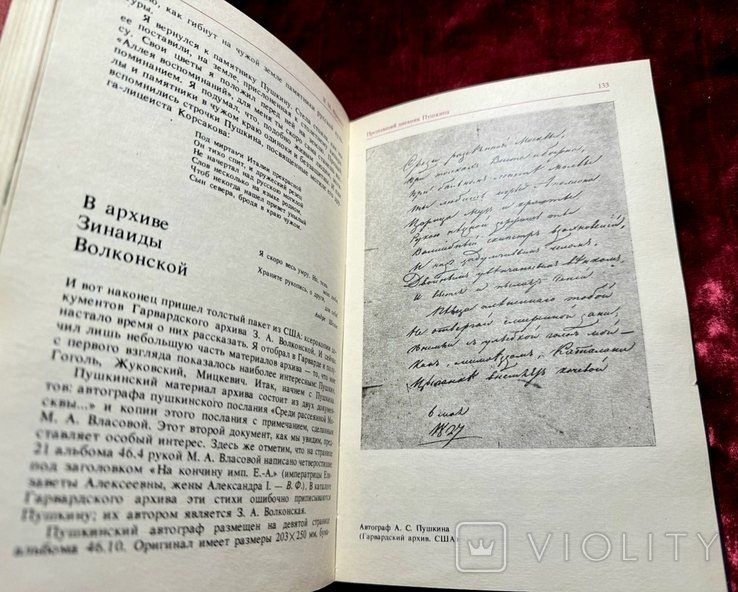 ью, как гибнут на чужой земле памятники русской
туры.
Я вернулся к памятнику Пушкину. Стела
ее поставили, на земле, прислоненная к
су. Свои цветы я положил перед ней на
«Аллея воспоминаний» для меня ты скоро
поминанием. Я подумал, что, подобно живым людям,
лы и памятники в чужом краю одиноки и беззащитны.
вспомнились строчки Пушкина, посвященные
га-лицеиста Корсакова:
Под миртами Италии прекрасной
Он тихо спит, и дружеский резец
Не начертал над русскою могилой
Слов несколько на языке родном,
Чтоб некогда нашел привет унылый
Сын севера, бродя в краю чужом.
В архиве
Зинаиды
Волконской
Я скоро весь умру. Но, тень мою любя,
Храните рукопись, о други, для себя!
Андре Шенье
И вот наконец пришел толстый пакет из США: ксерокопии до-
кументов Гарвардского архива З. А. Волконской. И сейчас
настало время о них рассказать. Я отобрал в Гарварде и полу-
чил лишь небольшую часть материалов архива — то, что мне
с первого взгляда показалось наиболее интересным: Пушкин,
Гоголь, Жуковский, Мицкевич. Итак, начнем с Пушкина.
Пушкинский материал архива состоит из двух докумен-
тов: автографа пушкинского послания «Среди рассеянной Мо-
сквы...» и копии этого послания с примечанием, сделанным
М. А. Власовой. Этот второй документ, как мы увидим, пред-
ставляет особый интерес. Здесь же отметим, что на странице
21 альбома 46.4 рукой М. А. Власовой написано четверостишие
под заголовком «На кончину имп. Е.-А.» (императрицы Ели-
заветы Алексеевны, жены Александра I. — В. Ф.). В каталоге
Гарвардского архива эти стихи ошибочно приписываются
Пушкину; их автором является З. А. Волконская.
Пушкинский автограф размещен на девятой странице
альбома 46.10. Оригинал имеет размеры 203×250 мм, бума-
Пропавший дневник Пушкина
133
Среди рассеянной Москвы,
При толках виста и бостона,
При бальном лепете молвы
Ты любишь игры Аполлона
Царица муз и красоты
Рукою нежной держишь ты
Волшебный скипетр вдохновений,
И над задумчивым челом,
Двойным увенчанным венком,
И вьется и пылает гений
Певца плененного тобой
Не отвергай смиренной дани,
Внемли с улыбкой голос мой
Как мимоездом Каталани
Цыганке внемлет кочевой
6 мая
1827
Автограф А. С. Пушкина
(Гарвардский архив. США)
VIOLITY